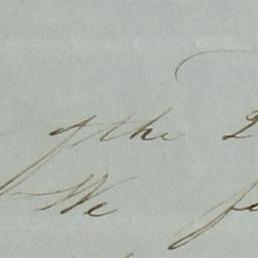 of the 2
We